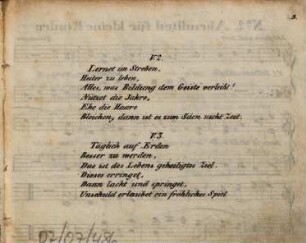 3.
V.2.
Lernet im Streben,
Heiter zu leben,
Alles, was Bildung dem Geiste verleiht!
Nützet die Jahre,
Ehe die Haare
Bleichen, dann ist es zum Säen nicht Zeit.
V.3.
Täglich auf Erden
Besser zu werden,
Das ist des Lebens geheiligtes Ziel.
Dieses erringet,
Dann lacht und springet,
Unschuld erlaubet ein fröhliches Spiel
07/07/48